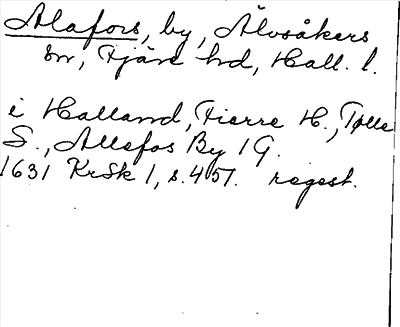 Alafors, by, Älvsåkers
sn, Fjäre hd, Hall. l.
i Halland, Fierre H., Tølle
S., Allefos By 1 G.
1631 KrSk 1, s. 457. regest.